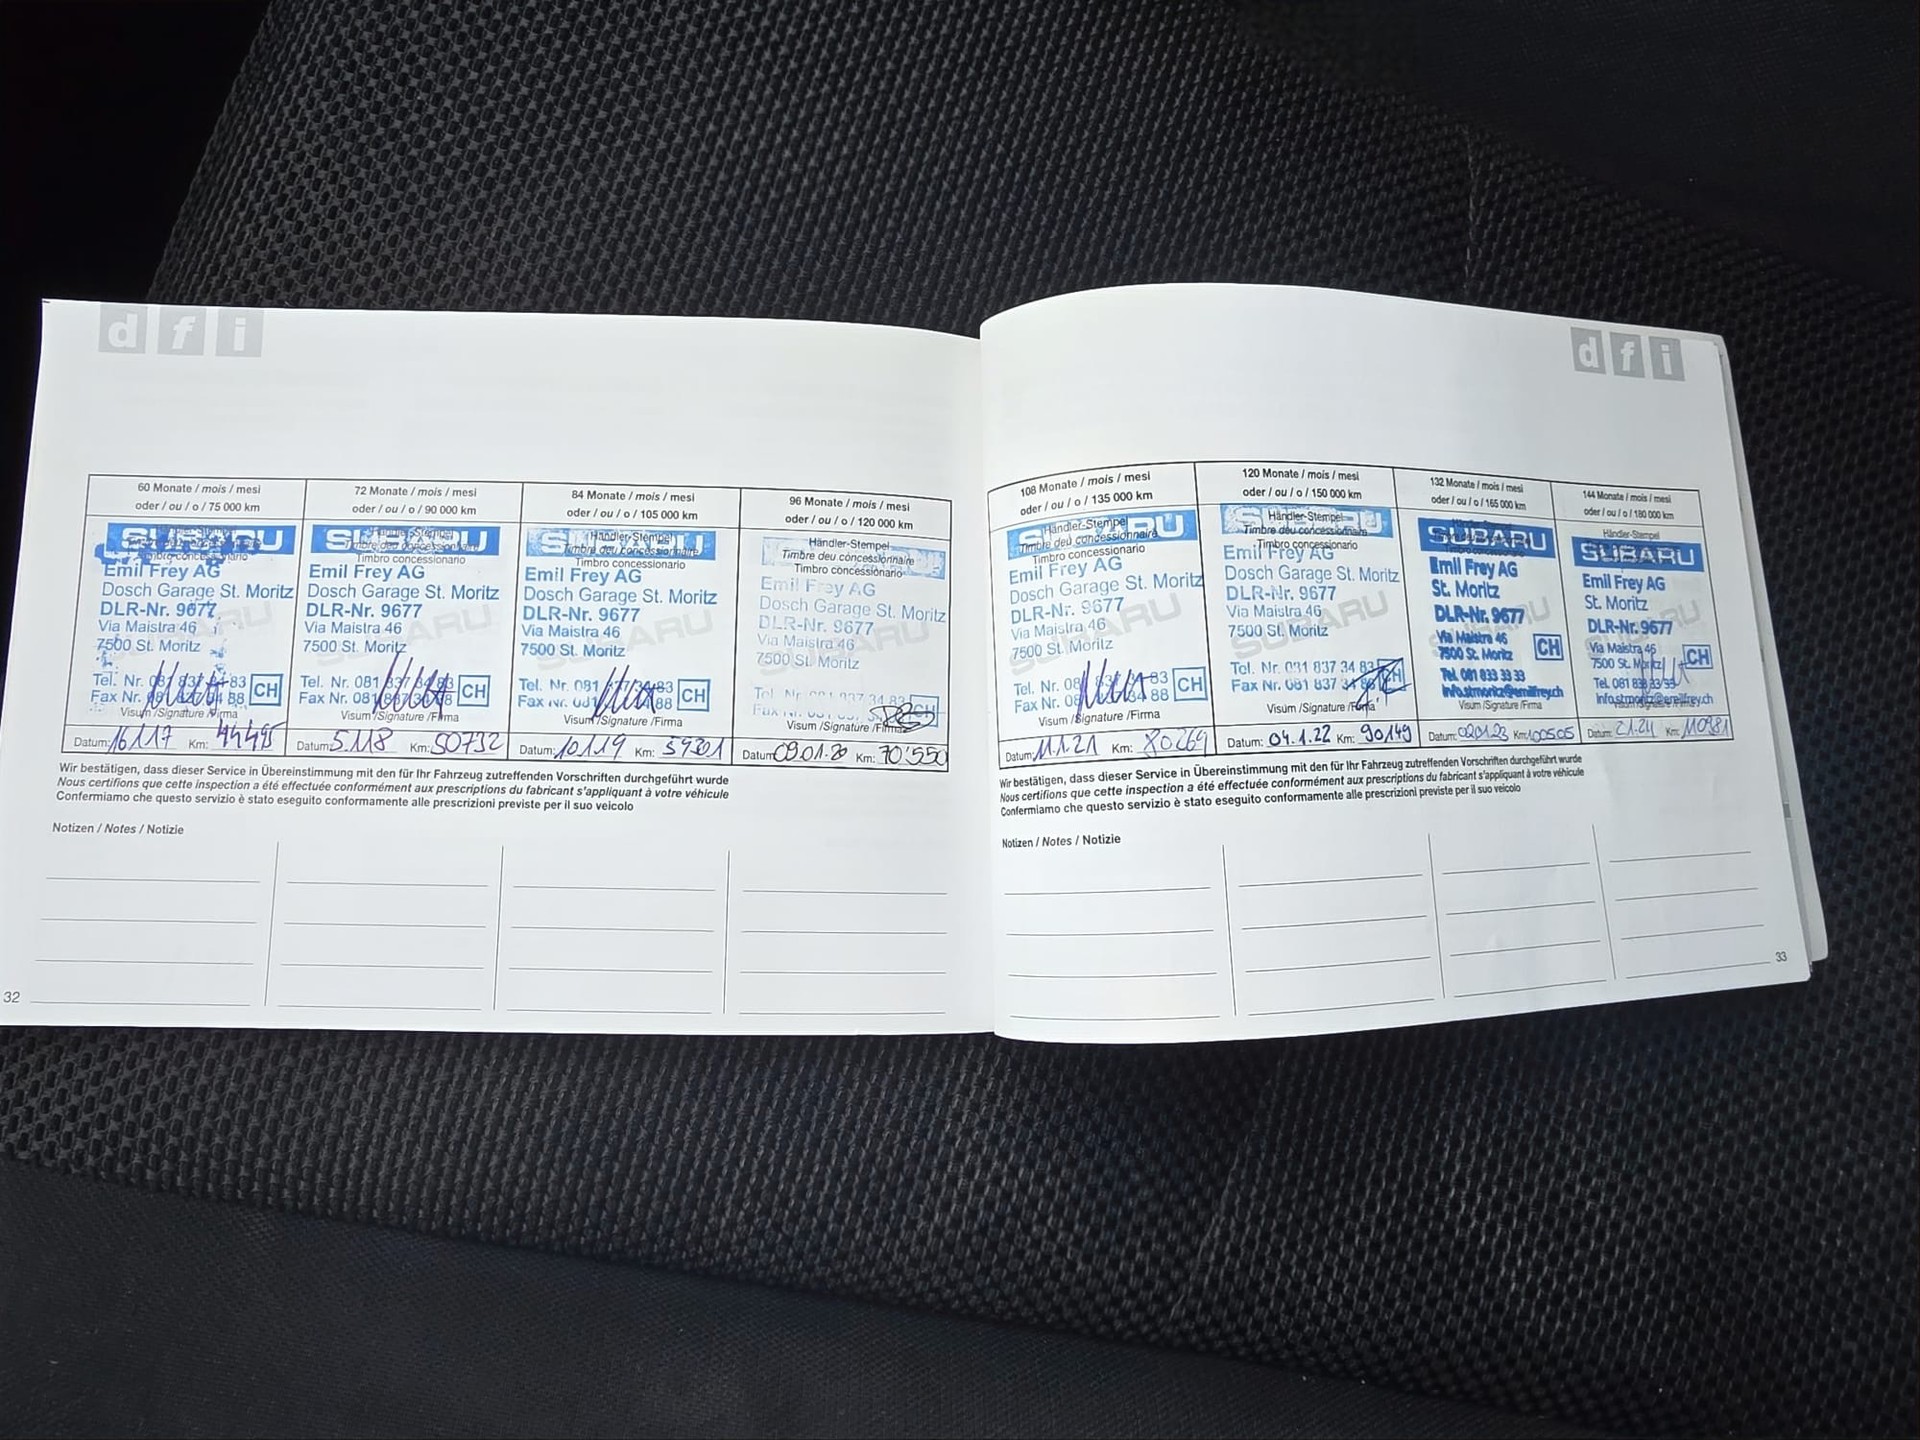 d f i
60 Monate / mois / mesi
oder / ou / o / 75 000 km
SUBARU
Händler-Stempel
Timbro concessionario
Emil Frey AG
Dosch Garage St. Moritz
DLR-Nr. 9677
Via Maistra 46
7500 St. Moritz
Tel. Nr. 081 837 34 83
Fax Nr. 081 837 34 88
CH
Visum /Signature /Firma
Datum: 16.1.17 Km: 44495
72 Monate / mois / mesi
oder / ou / o / 90 000 km
SUBARU
Händler-Stempel
Timbre deu concessionnaire
Timbro concessionario
Emil Frey AG
Dosch Garage St. Moritz
DLR-Nr. 9677
Via Maistra 46
7500 St. Moritz
Tel. Nr. 081 837 34 83
Fax Nr. 081
CH
Visum /Signature /Firma
Datum: 5.1.18 Km: 50732
84 Monate / mois / mesi
oder / ou / o / 105 000 km
SUBARU
Händler-Stempel
Timbre deu concessionnaire
Timbro concessionario
Emil Frey AG
Dosch Garage St. Moritz
DLR-Nr. 9677
Via Maistra 46
7500 St. Moritz
Tel. Nr. 081 83
Fax Nr. 081 88
CH
Visum /Signature /Firma
Datum: 10.1.19 Km: 59301
96 Monate / mois / mesi
oder / ou / o / 120 000 km
Händler-Stempel
Timbre deu concessionnaire
Timbro concessionario
Emil Frey AG
Dosch Garage St. Moritz
DLR-Nr. 9677
Via Maistra 46
7500 St. Moritz
Tel. Nr. 081 837 34 83
CH
Visum /Signature /Firma
Datum: 09.01.20 Km: 70'550
Wir bestätigen, dass dieser Service in Übereinstimmung mit den für Ihr Fahrzeug zutreffenden Vorschriften durchgeführt wurde
Nous certifions que cette inspection a été effectuée conformément aux prescriptions du fabricant s'appliquant à votre véhicule
Confermiamo che questo servizio è stato eseguito conformamente alle prescrizioni previste per il suo veicolo
Notizen / Notes / Notizie
32
d f i
108 Monate / mois / mesi
oder / ou / o / 135 000 km
SUBARU
Händler-Stempel
Timbre deu concessionnaire
Timbro concessionario
Emil Frey AG
Dosch Garage St. Moritz
DLR-Nr. 9677
Via Maistra 46
7500 St. Moritz
Tel. Nr. 08 83
Fax Nr. 08 34 88
CH
Visum /Signature /Firma
Datum: 11.1.21 Km: 80269
120 Monate / mois / mesi
oder / ou / o / 150 000 km
SUBARU
Händler-Stempel
Timbre deu concessionnaire
Timbro concessionario
Emil Frey AG
Dosch Garage St. Moritz
DLR-Nr. 9677
Via Maistra 46
7500 St. Moritz
Tel. Nr. 081 837 34 83
Fax Nr. 081 837 34
CH
Visum /Signature /Firma
Datum: 04.1.22 Km: 90149
132 Monate / mois / mesi
oder / ou / o / 165 000 km
SUBARU
Händler-Stempel
Timbro concessionario
Emil Frey AG
St. Moritz
DLR-Nr. 9677
Via Maistra 46
7500 St. Moritz
CH
Tel. 081 833 33 33
info.stmoritz@emilfrey.ch
Visum /Signature /Firma
Datum: 02.01.23 Km: 100505
144 Monate / mois / mesi
oder / ou / o / 180 000 km
Händler-Stempel
SUBARU
Emil Frey AG
St. Moritz
DLR-Nr. 9677
Via Maistra 46
7500 St. Moritz
CH
Tel. 081 833 33 33
info.stmoritz@emilfrey.ch
Datum: 2.1.24 Km: 110981
Wir bestätigen, dass dieser Service in Übereinstimmung mit den für Ihr Fahrzeug zutreffenden Vorschriften durchgeführt wurde
Nous certifions que cette inspection a été effectuée conformément aux prescriptions du fabricant s'appliquant à votre véhicule
Confermiamo che questo servizio è stato eseguito conformamente alle prescrizioni previste per il suo veicolo
Notizen / Notes / Notizie
33